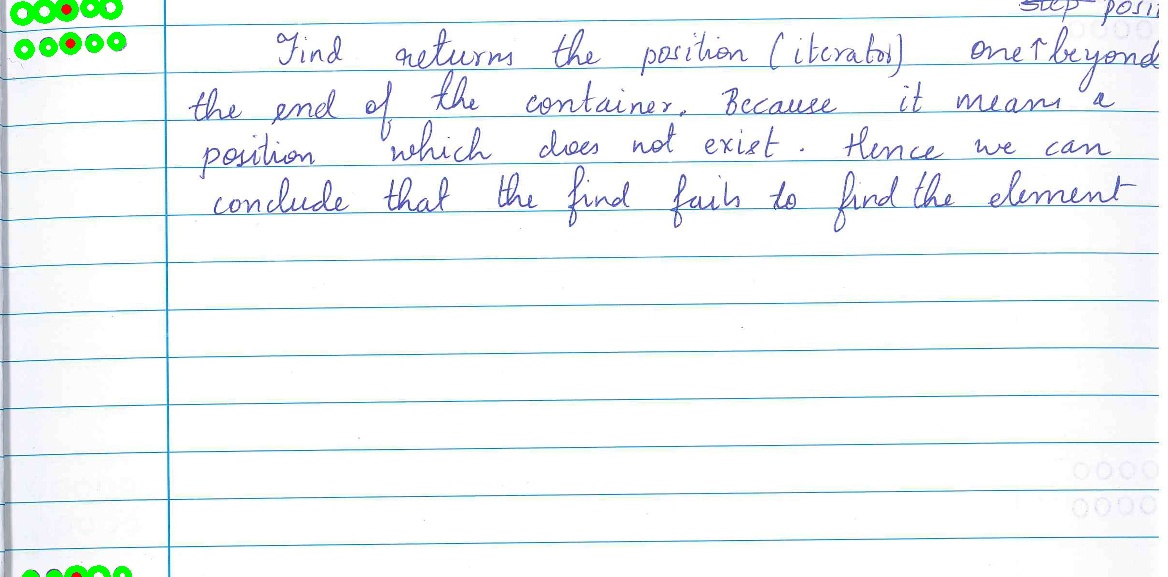 step posi
Find returns the position (iterator) one↑beyond
the end of the container. Because it means a
position which does not exist. Hence we can
conclude that the find fails to find the element